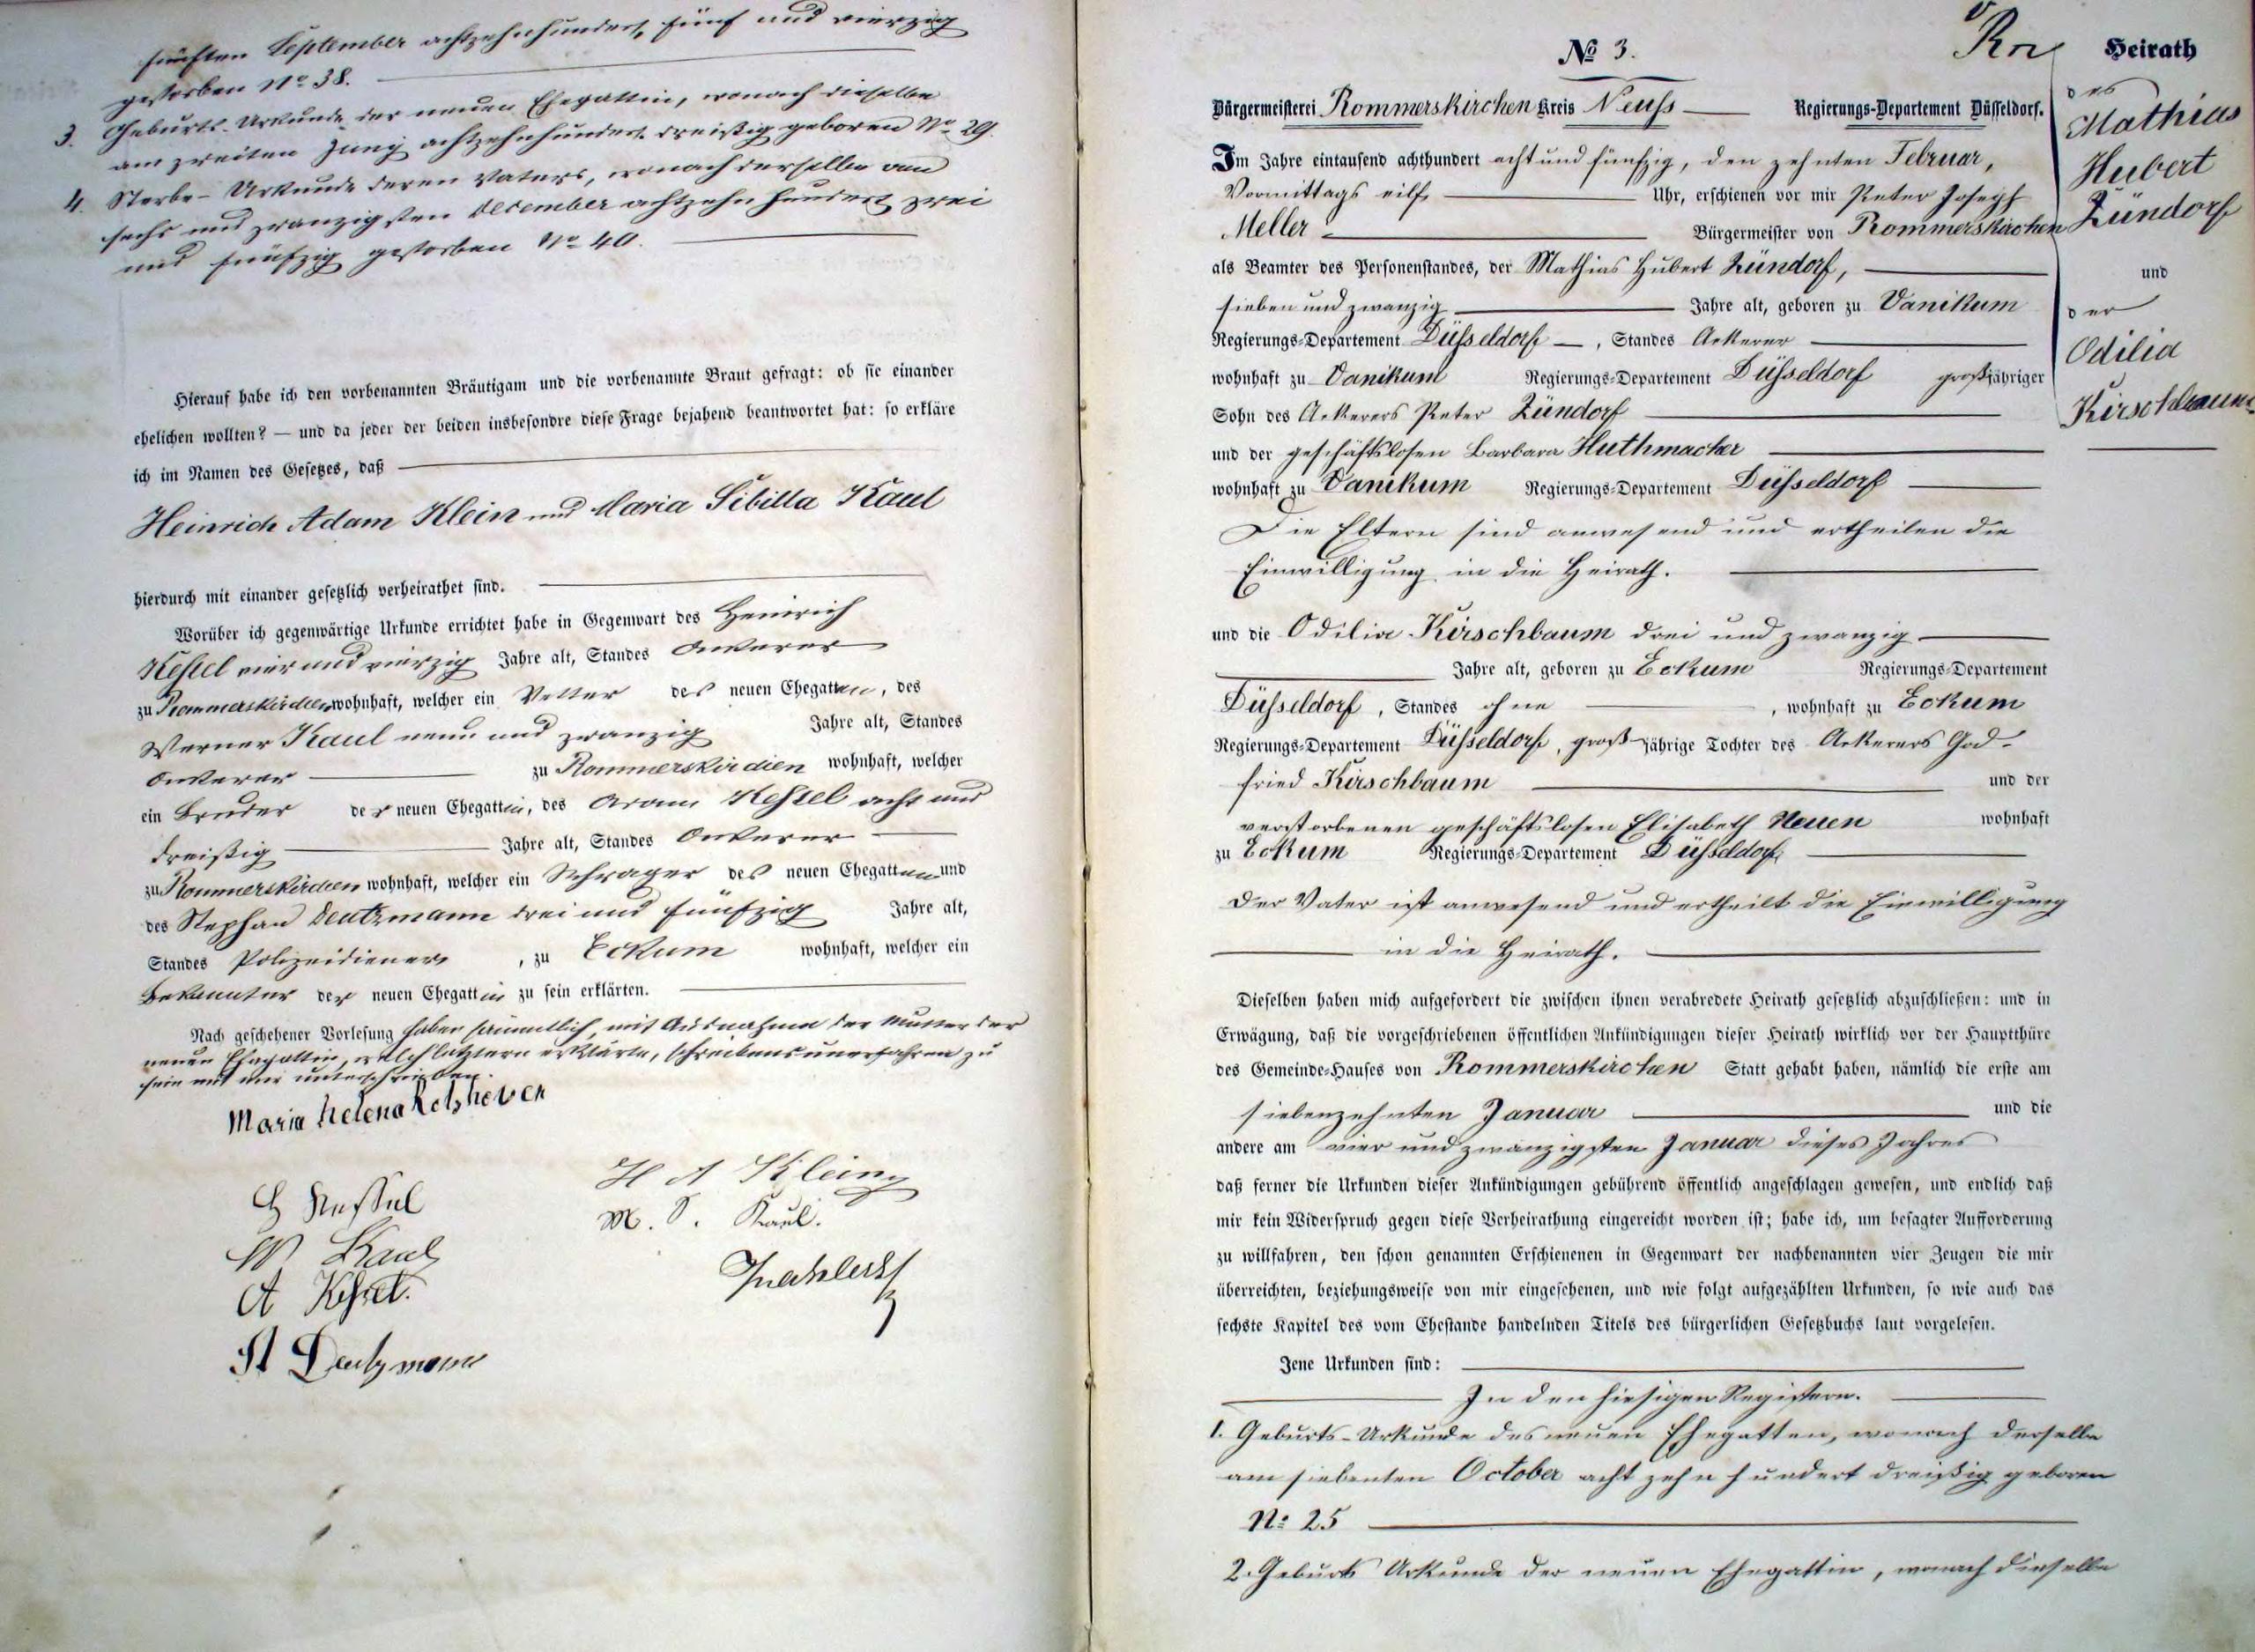 fünften September achtzehnhundert fünf und vierzig
gestorben No 38.
3. Geburts-Urkunde der neuen Ehegattin, wonach dieselbe
am zweiten Juny achtzehnhundert dreißig geboren No 29.
4. Sterbe-Urkunde deren Vaters, wonach derselbe am
sechs und zwanzigsten December achtzehnhundert zwei
und fünfzig gestorben No 40.
Hierauf habe ich den vorbenannten Bräutigam und die vorbenannte Braut gefragt: ob sie einander
ehelichen wollten? — und da jeder der beiden insbesondre diese Frage bejahend beantwortet hat: so erkläre
ich im Namen des Gesetzes, daß
Heinrich Adam Klein und Maria Sibilla Kaul
hierdurch mit einander gesetzlich verheirathet sind.
Worüber ich gegenwärtige Urkunde errichtet habe in Gegenwart des Heinrich
Keßel vier und vierzig Jahre alt, Standes Ackerer
zu Rommerskirchen wohnhaft, welcher ein Vetter des neuen Ehegatten, des
Werner Kaul neun und zwanzig Jahre alt, Standes
Ackerer zu Rommerskirchen wohnhaft, welcher
ein Bruder der neuen Ehegattin, des Adam Keßel acht und
dreißig Jahre alt, Standes Ackerer
zu Rommerskirchen wohnhaft, welcher ein Schwager des neuen Ehegatten und
des Stephan Deutzmann drei und fünfzig Jahre alt,
Standes Polizeidiener, zu Eckum wohnhaft, welcher ein
Bekannter der neuen Ehegattin zu sein erklärten.
Nach geschehener Vorlesung haben sämmtlich, mit Ausnahme der Mutter der
neuen Ehegattin, welch letztere erklärte, schreibensunerfahren zu
sein mit mir unterschrieben.
Maria helena
H A Klein
H Kessel
M. S. Kaul.
W Kaul
A Keßel.
St Deutzmann
No 3.
Heirath
Bürgermeisterei Rommerskirchen Kreis Neuss Regierungs-Departement Düsseldorf.
des
Mathias
Hubert
Zündorf
und
der
Odilia
Kirschbaum
Im Jahre eintausend achthundert acht und fünfzig, den zehnten Februar,
Vormittags eilf Uhr, erschienen vor mir Peter Joseph
Meller Bürgermeister von Rommerskirchen
als Beamter des Personenstandes, der Mathias Hubert Zündorf,
sieben und zwanzig Jahre alt, geboren zu Vanikum
Regierungs-Departement Düsseldorf, Standes Ackerer
wohnhaft zu Vanikum Regierungs-Departement Düsseldorf großjähriger
Sohn des Ackerers Peter Zündorf
und der geschäftslosen Barbara Huthmacher
wohnhaft zu Vanikum Regierungs-Departement Düsseldorf
Die Eltern sind anwesend und ertheilen die
Einwilligung in die Heirath.
und die Odilia Kirschbaum drei und zwanzig
Jahre alt, geboren zu Eckum Regierungs-Departement
Düsseldorf, Standes ohne, wohnhaft zu Eckum
Regierungs-Departement Düsseldorf, großjährige Tochter des Ackerers God-
fried Kirschbaum und der
verstorbenen geschäftslosen Elisabeth Neuen wohnhaft
zu Eckum Regierungs-Departement Düsseldorf,
Der Vater ist anwesend und ertheilt die Einwilligung
in die Heirath.
Dieselben haben mich aufgefordert die zwischen ihnen verabredete Heirath gesetzlich abzuschließen: und in
Erwägung, daß die vorgeschriebenen öffentlichen Ankündigungen dieser Heirath wirklich vor der Hauptthüre
des Gemeinde-Hauses von Rommerskirchen Statt gehabt haben, nämlich die erste am
siebenzehnten Januar und die
andere am vier und zwanzigsten Januar dieses Jahres
daß ferner die Urkunden dieser Ankündigungen gebührend öffentlich angeschlagen gewesen, und endlich daß
mir kein Widerspruch gegen diese Verheirathung eingereicht worden ist; habe ich, um besagter Aufforderung
zu willfahren, den schon genannten Erschienenen in Gegenwart der nachbenannten vier Zeugen die mir
überreichten, beziehungsweise von mir eingesehenen, und wie folgt aufgezählten Urkunden, so wie auch das
sechste Kapitel des vom Ehestande handelnden Titels des bürgerlichen Gesetzbuchs laut vorgelesen.
Jene Urkunden sind:
In den hiesigen Registern.
1. Geburts-Urkunde des neuen Ehegatten, wonach derselbe
am siebenten October achtzehnhundert dreißig geboren
No 25
2. Geburts Urkunde der neuen Ehegattin, wonach dieselbe